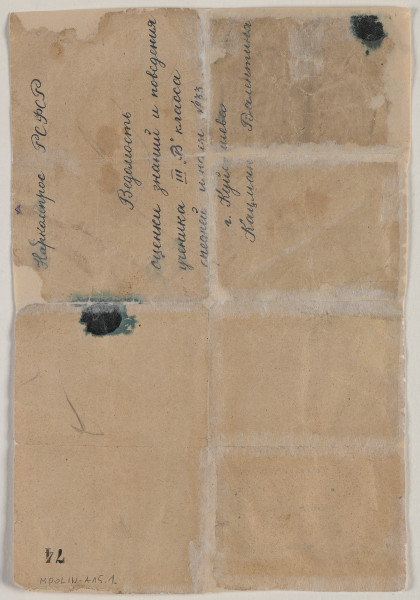 Наркомпрос РСФСР
Ведомость
оценки знаний и поведения
ученика III "В" класса
средней школы №33
г. Куйбышева
Кацман Валентина
74